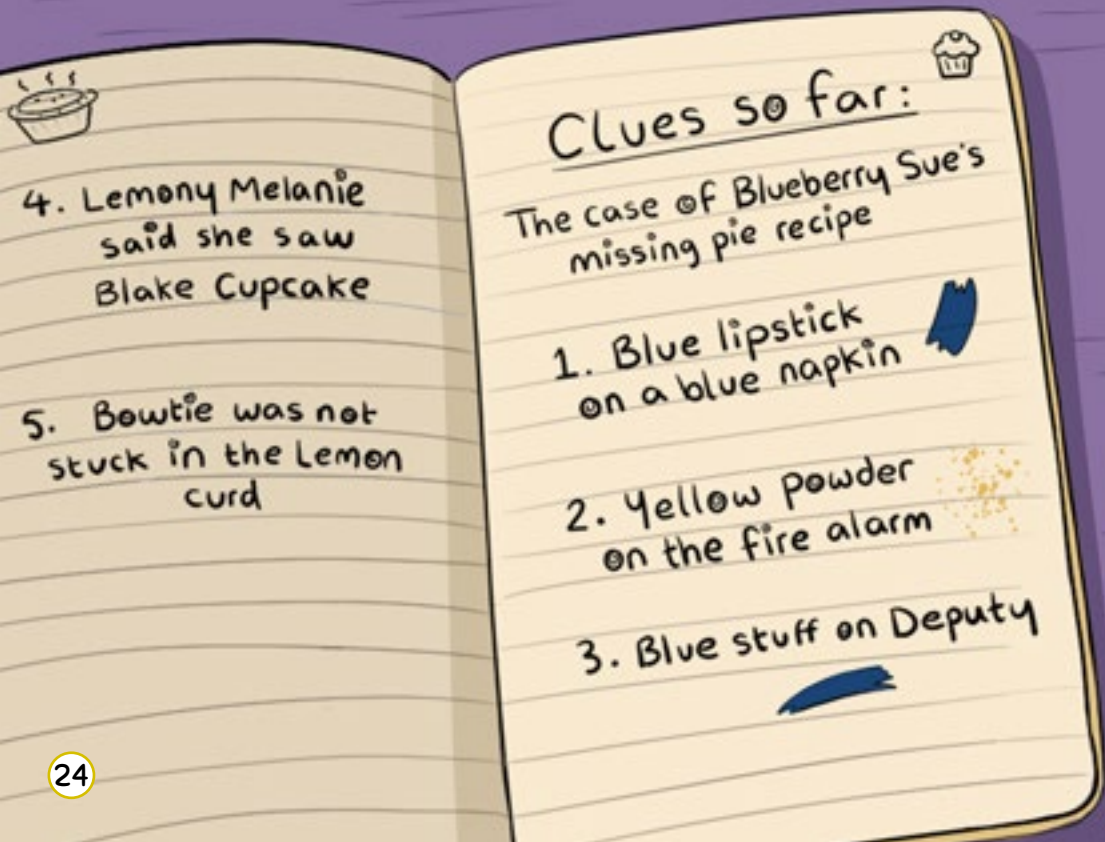 4. Lemony Melanie
said she saw
Blake Cupcake
5. Bowtie was not
stuck in the Lemon
curd
24
Clues so far:
The case of Blueberry Sue's
missing pie recipe
1. Blue lipstick
on a blue napkin
2. Yellow powder
on the fire alarm
3. Blue stuff on Deputy